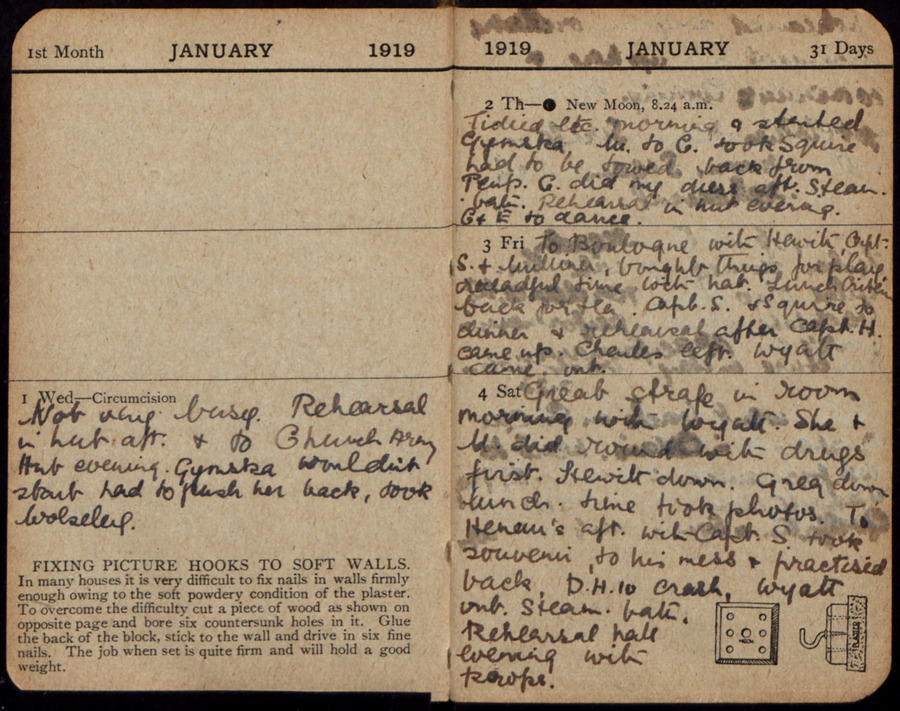 1st Month JANUARY 1919
1 Wed—Circumcision
Not very busy. Rehearsal
in hut aft. & to Church Army
Hut evening. Gymska wouldn't
start had to push her back, took
Wolseley.
FIXING PICTURE HOOKS TO SOFT WALLS.
In many houses it is very difficult to fix nails in walls firmly
enough owing to the soft powdery condition of the plaster.
To overcome the difficulty cut a piece of wood as shown on
opposite page and bore six countersunk holes in it. Glue
the back of the block, stick to the wall and drive in six fine
nails. The job when set is quite firm and will hold a good
weight.
1919 JANUARY 31 Days
2 Th—● New Moon, 8.24 a.m.
Tidied etc. morning & started
Gymska. M. to C. took Squire
had to be towed back from
C. did my dress aft. Steam
bath. Rehearsal in hut evening.
G & E to dance.
3 Fri To Boulogne with Hewitt, Capt.
S. & bought things for play,
dreadful time with hat. Lunch
back for tea. Capt. S. & Squire to
dinner & rehearsal after Capt. H.
came up. Charles left. Wyatt
came out.
4 Sat Great strafe in room
morning with Wyatt. She &
M. did round with drugs
first. Hewitt down. Greg down
lunch. time took photos. To
aft. with Capt. S took
souvenir to his mess & practised
back, D.H.10 crash, Wyatt
out. Steam bath.
Rehearsal hall
evening with